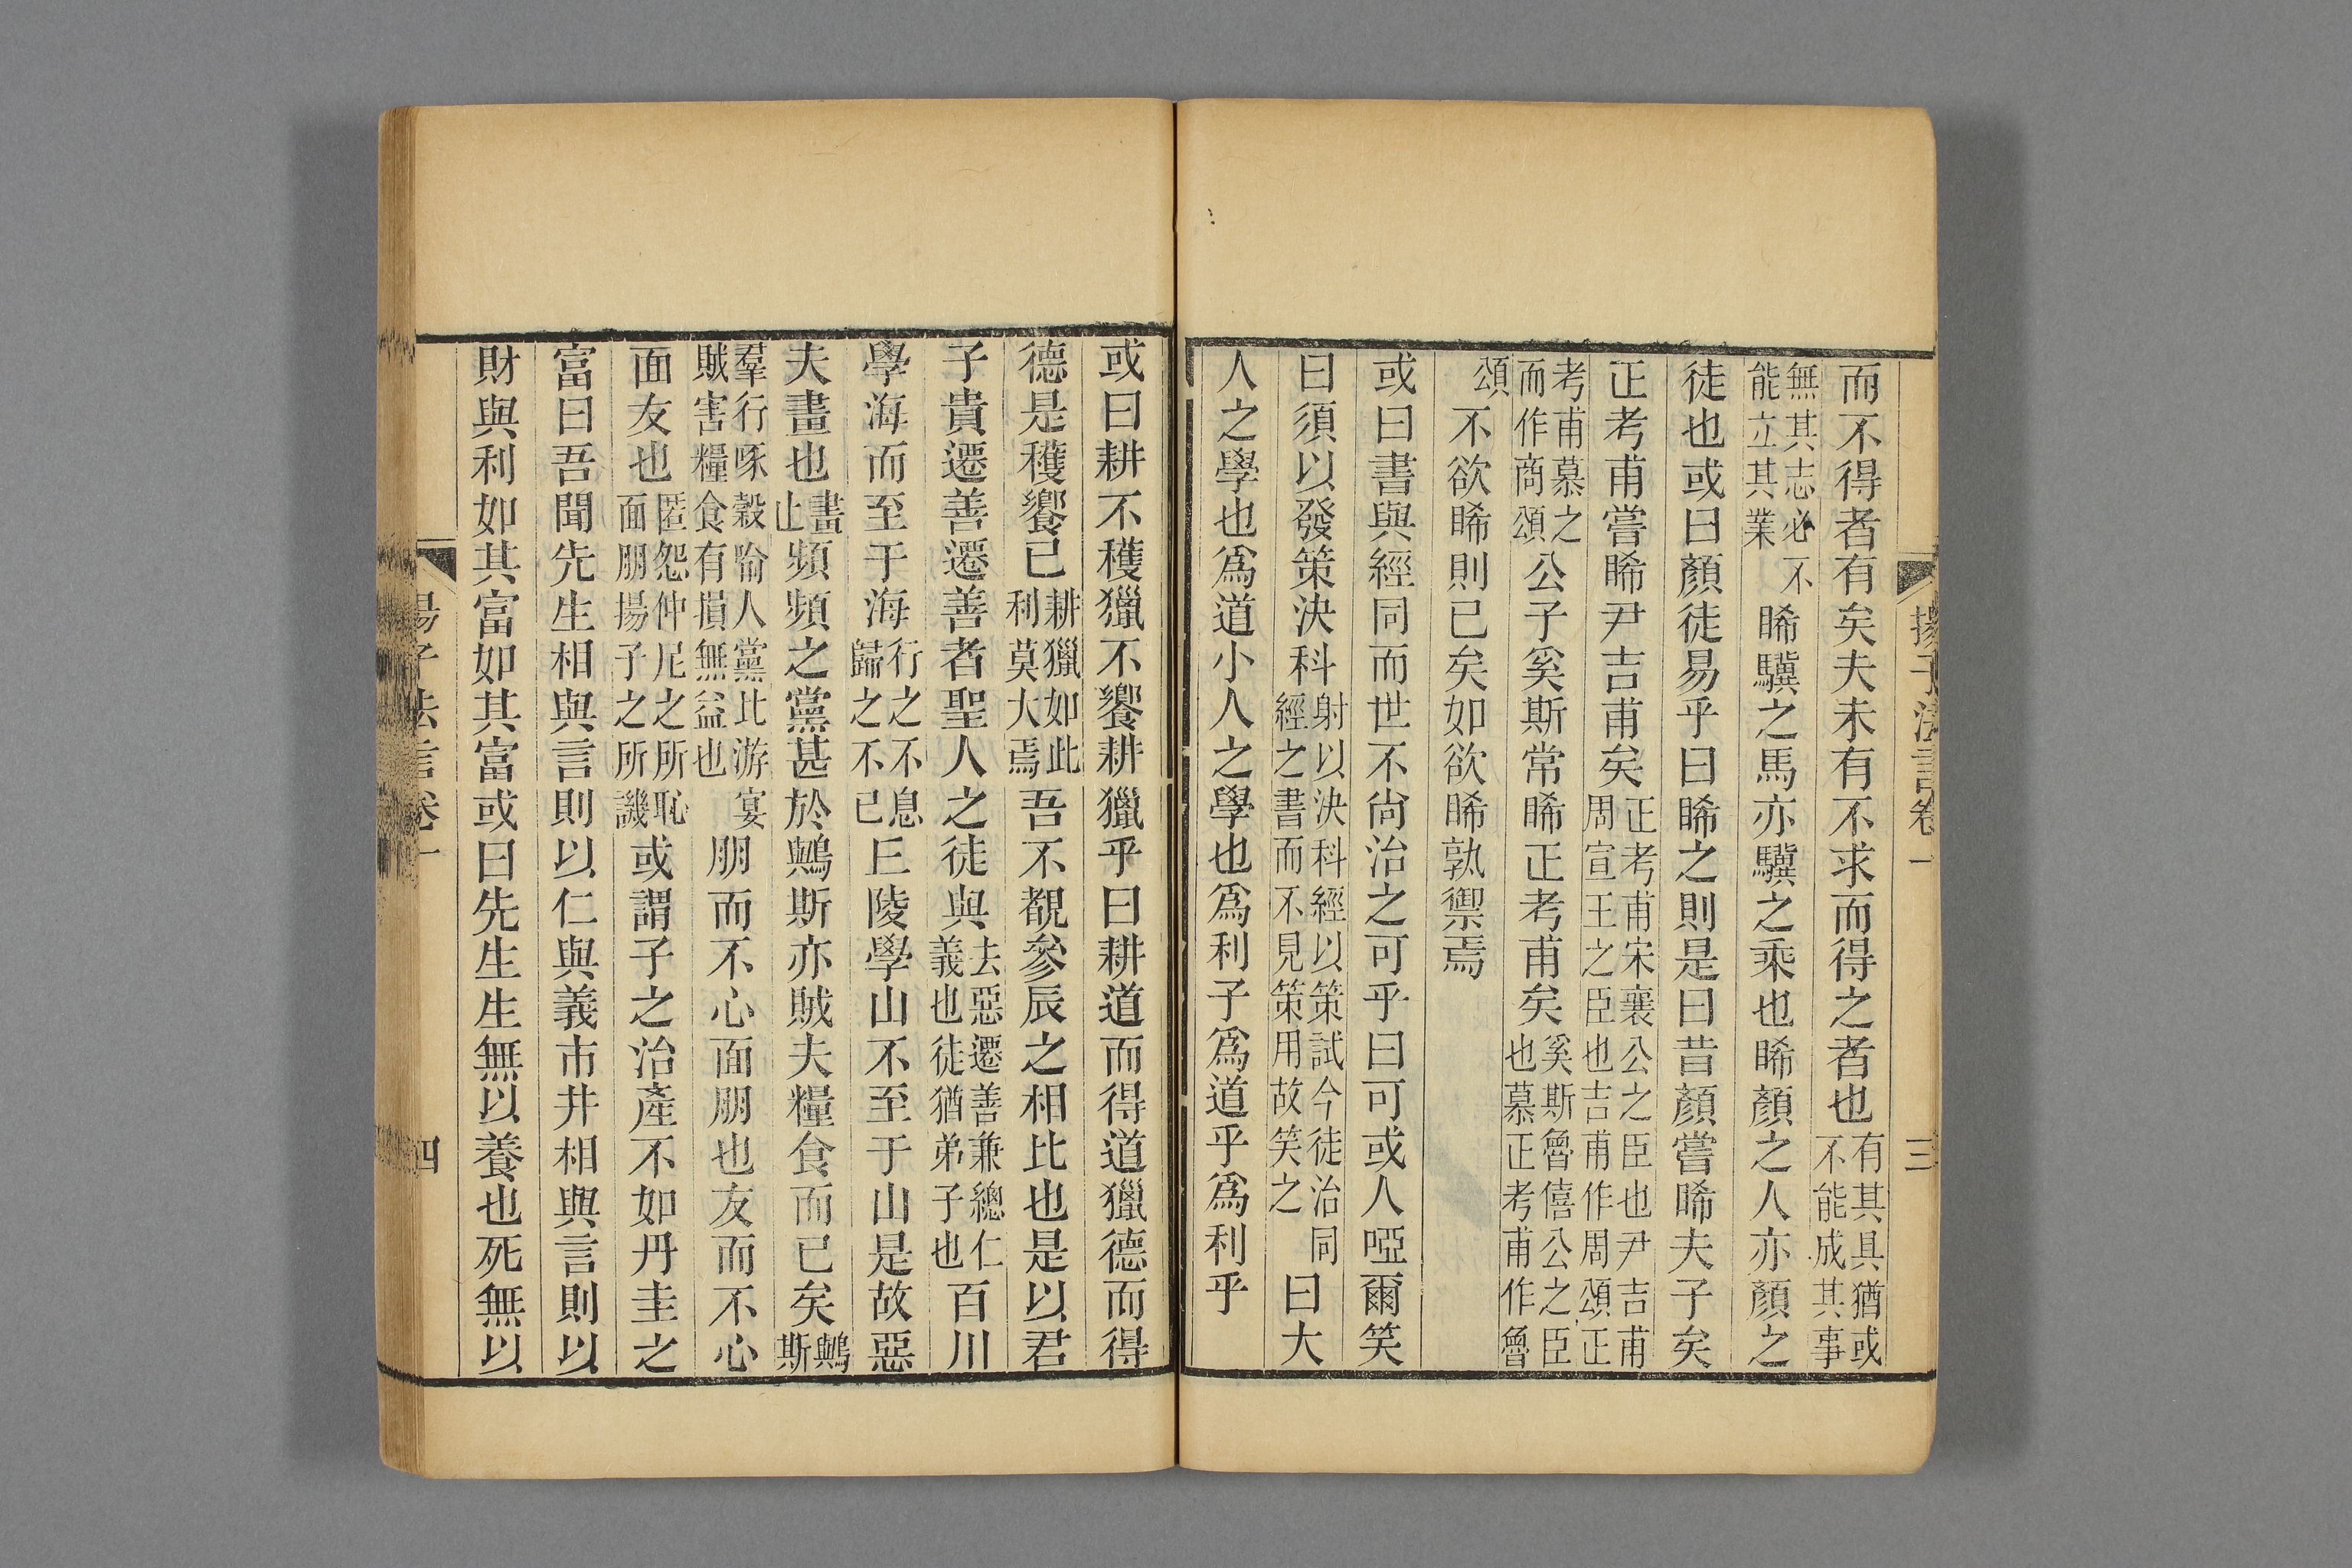 揚子法言卷一 三
而不得者有矣夫未有不求而得之者也有其具猶或不能成其事
無其志必不能立其業睎驥之馬亦驥之乘也睎顏之人亦顏之
徒也或曰顏徒易乎曰睎之則是曰昔顏嘗睎夫子矣
正考甫嘗睎尹吉甫矣正考甫宋襄公之臣也尹吉甫周宣王之臣也吉甫作周頌正
考甫慕之而作商頌公子奚斯常睎正考甫矣奚斯魯僖公之臣也慕正考甫作魯
頌不欲睎則已矣如欲睎孰禦焉
或曰書與經同而世不尙治之可乎曰可或人啞爾笑
曰須以發策決科射以決科經以策試今徒治同經之書而不見策用故笑之曰大
人之學也爲道小人之學也爲利子爲道乎爲利乎
或曰耕不穫獵不饗耕獵乎曰耕道而得道獵德而得
德是穫饗已耕獵如此利莫大焉吾不覩參辰之相比也是以君
子貴遷善遷善者聖人之徒與去惡遷善兼總仁義也徒猶弟子也百川
學海而至于海行之不息歸之不已丘陵學山不至于山是故惡
夫畫也畫止頻頻之黨甚於鷝斯亦賊夫糧食而已矣鷝斯
羣行啄穀喻人黨比游宴賊害糧食有損無益也朋而不心面朋也友而不心
面友也匿怨仲尼之所恥面朋揚子之所譏或謂子之治產不如丹圭之
富曰吾聞先生相與言則以仁與義市井相與言則以
財與利如其富如其富或曰先生生無以養也死無以
揚子法言卷一 四